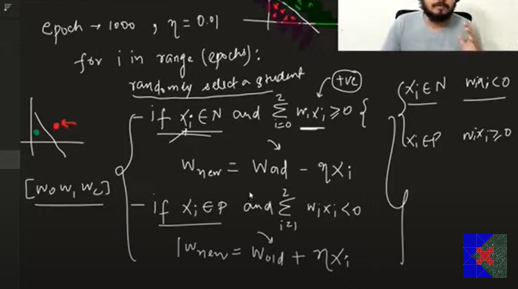 epoch → 1000 , η = 0.01
for i in range (epochs):
randomly select a student
+ve
if Xi ∈ N and Σ i=0 2 wixi ≥ 0 {
wnew = wold - ηXi
if Xi ∈ P and Σ i=1 2 wixi < 0
wnew = wold + ηXi
[w0 w1 w2]
Xi ∈ N wixi < 0
Xi ∈ P wixi ≥ 0